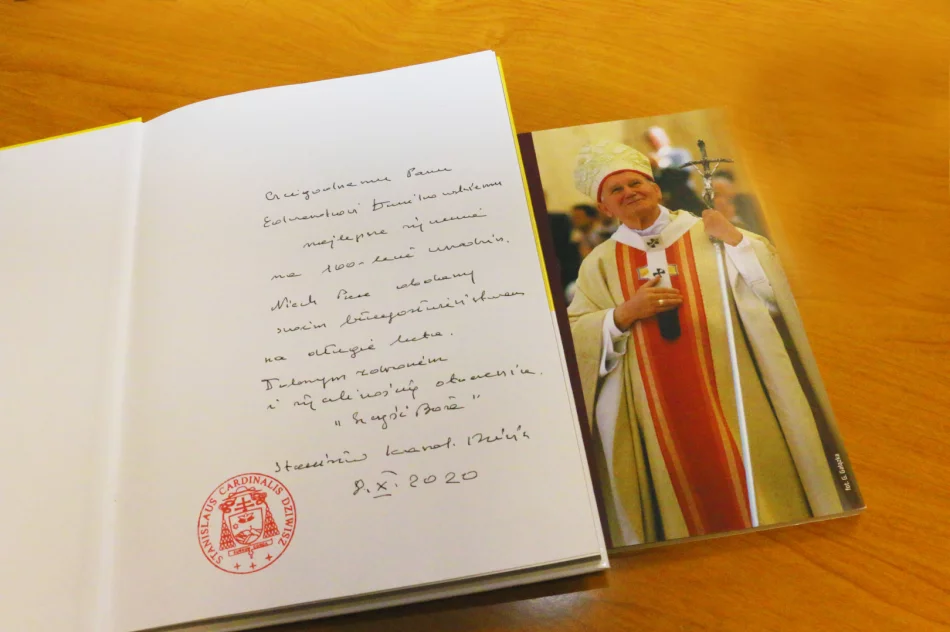 Czcigodnemu Panu
Edwardowi
najlepsze życzenia
na 100-lecie urodzin.
Niech Pan obdarzy
swoim błogosławieństwem
na długie lata.
Dobrym zdrowiem
i życzliwością otoczenia.
"Szczęść Boże"
Stanisław kard. Dziwisz
8.X.2020
STANISLAUS CARDINALIS DZIWISZ
fot. G. Gałązka